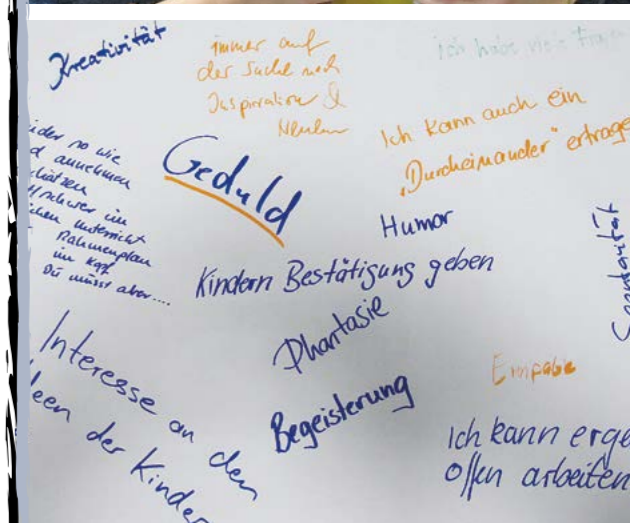 Kreativität
immer auf
der Suche nach
Inspiration &
Neuem
ich habe viele
Ich kann auch ein
„Durcheinander“ ertrage
so wie
annehmen
schwer im
Unterricht
Rahmenplan
im Kopf
Du müsst aber....
Geduld
Humor
Kindern Bestätigung geben
Spontanität
Phantasie
Interesse an den
deen der Kinder
Begeisterung
Ich kann erge
offen arbeiten